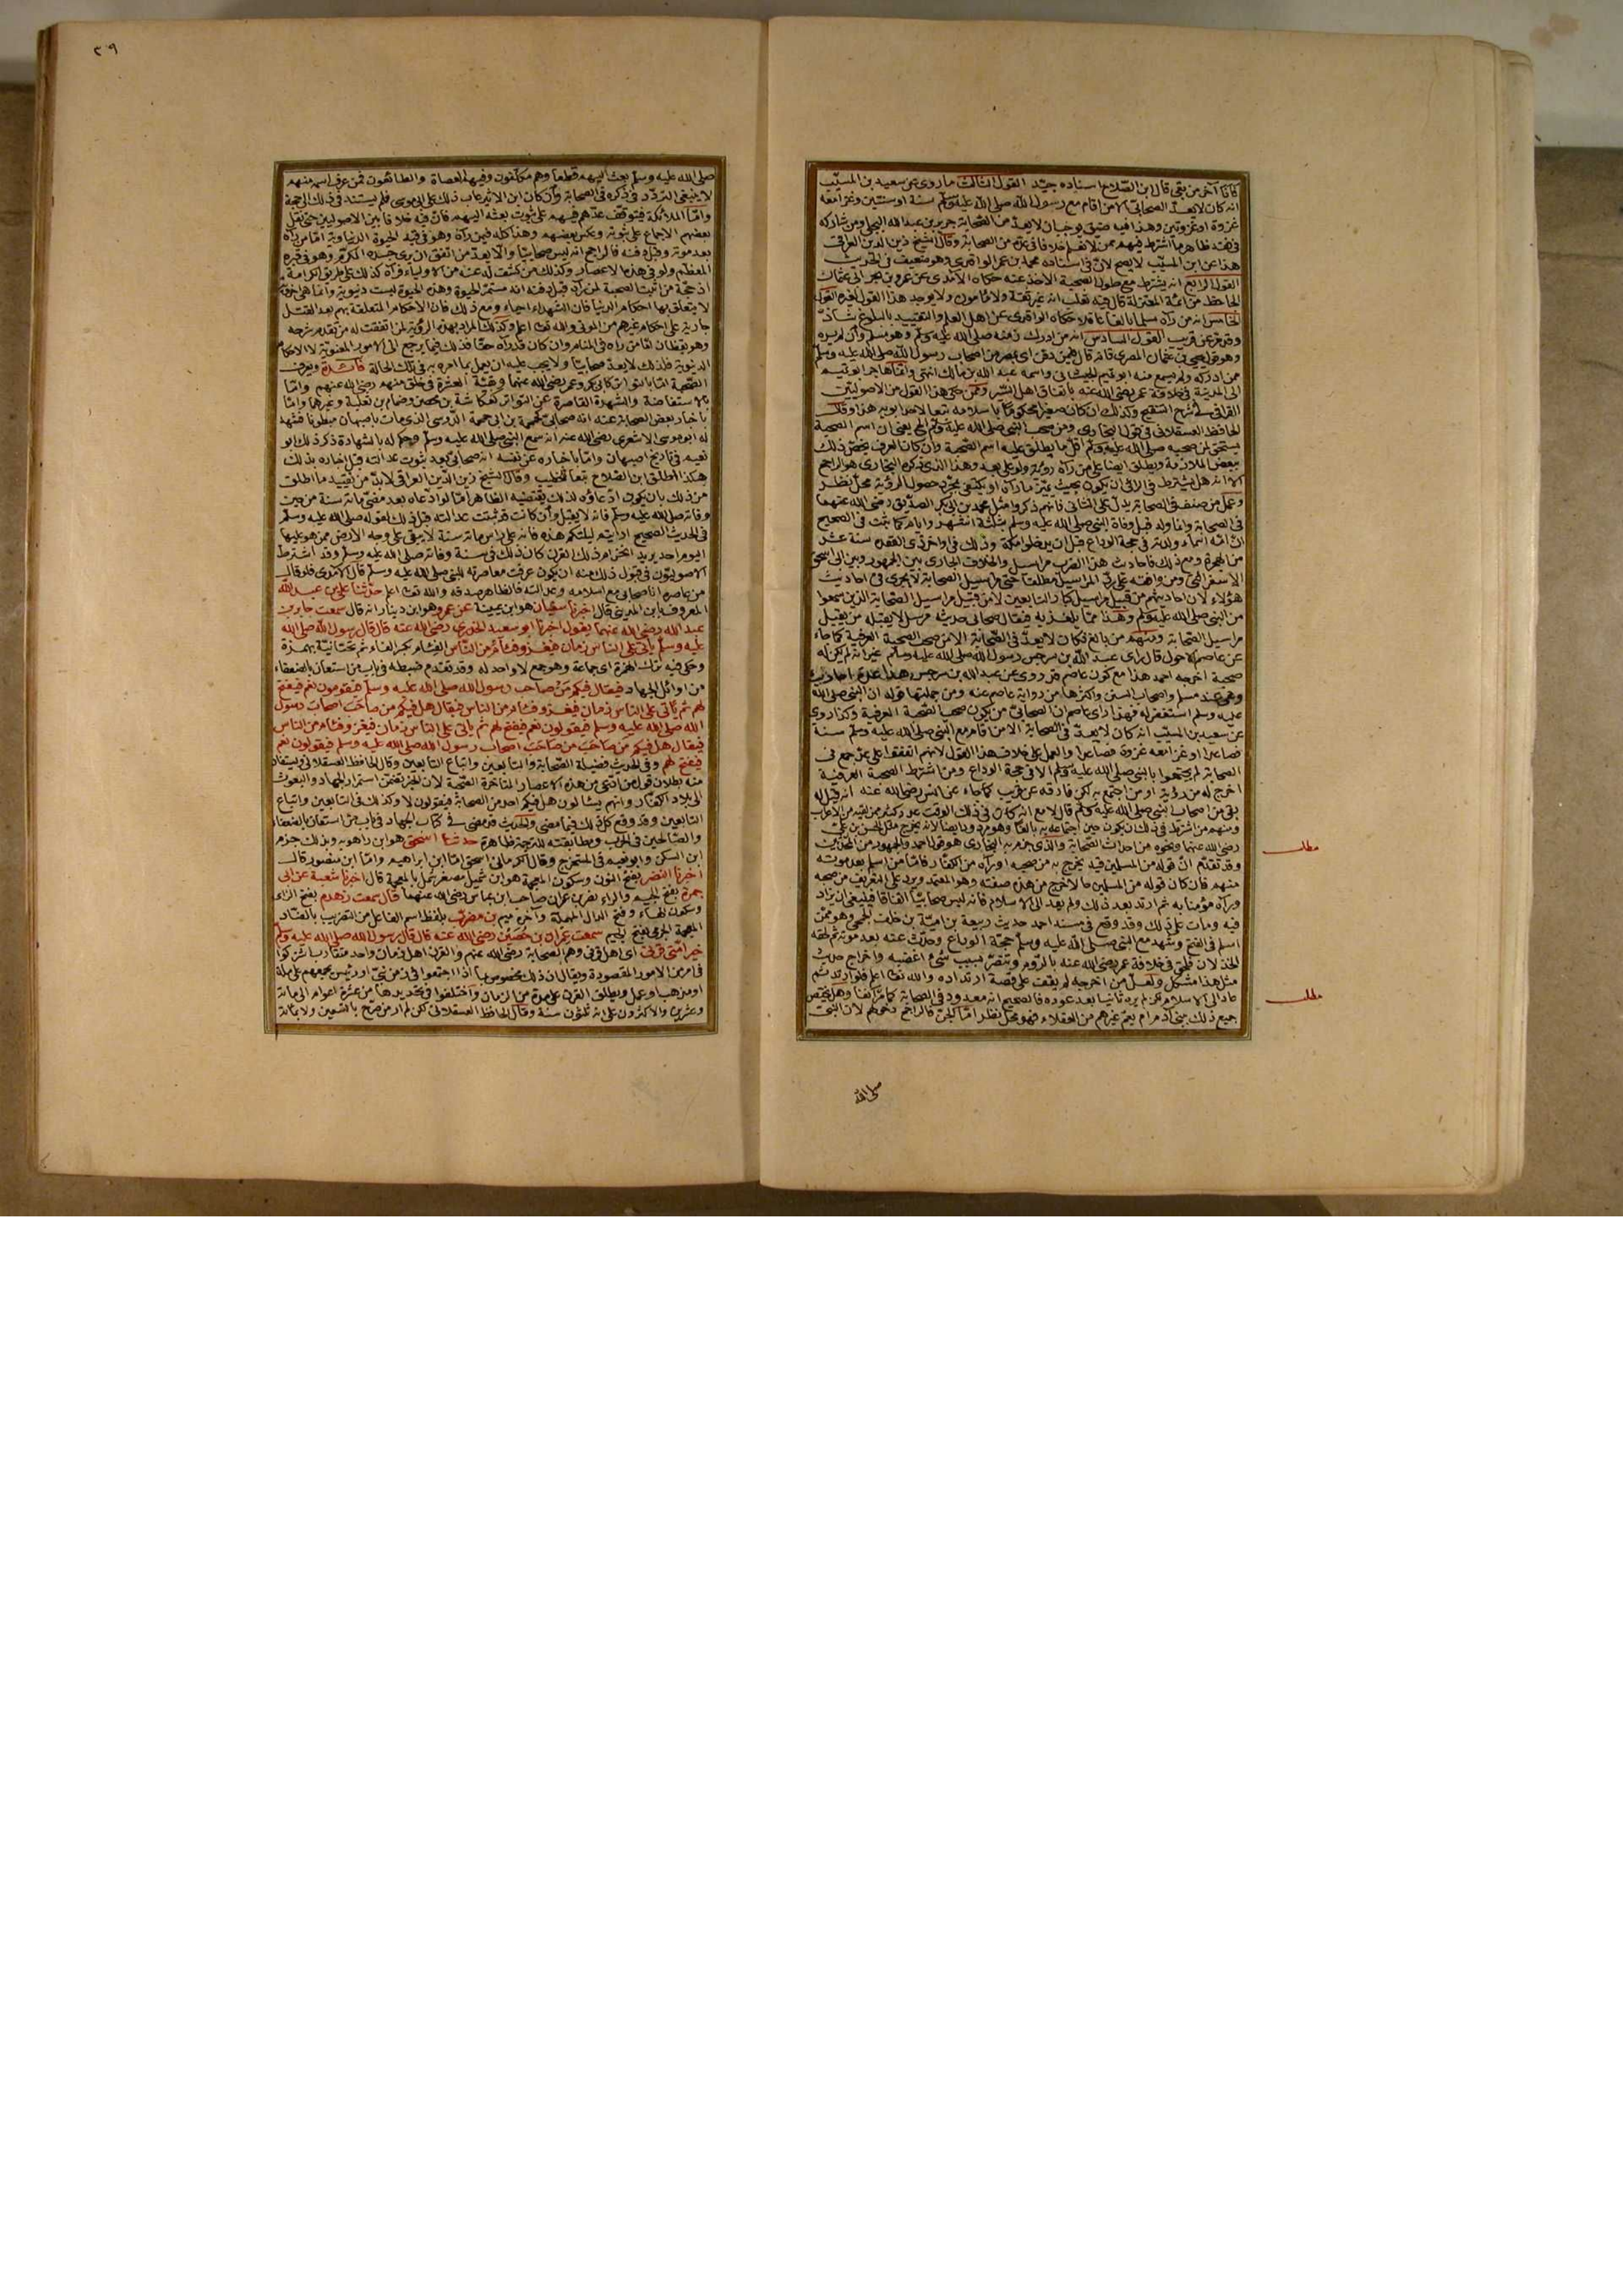 فأمّا آخر من بقي قال ابن الصّلاح اسناده جيّد القول الثالث ما روى عن سعيد بن المسيّب
انه كان لا يعدّ الصحابيّ الا من اقام مع رسول الله صلى الله عليه وسلم سنة او سنتين وغزا معه
غزوة او غزوتين وهذا فيه ضيق يوجب ان لا يعدّ من الصّحابة جرير بن عبد الله البجلي ومن شاركه
في فقد ظاهر ما اشترطه فيهم ممن لا نعلم خلافا في عدّه من الصحابة وقال الشيخ زين الدين العراقي
هذا عن ابن المسيّب لا يصح لانّ في اسناده محمد بن عمر الواقدي وهو ضعيف في الحديث
القول الرابع انه يشترط مع طول الصحبة الاخذ عنه حكاه الآمدي عن عمرو بن بحر ابي عثمان
الجاحظ من ائمة المعتزلة قال فيه ثعلب انه غير ثقة ولا مأمون ولا يوجد هذا القول لغيره القول
الخامس انه من رآه مسلما بالغا عاقلا حكاه الواقدي عن اهل العلم والتقييد بالبلوغ شاذّ
وقد مرّ عن قريب القول السادس انه من ادرك زمنه صلى الله عليه وسلم وهو مسلم وان لم يره
وهو قول يحيى بن عثمان المصري فانه قال فيمن دفن اى بمصر من اصحاب رسول الله صلى الله عليه وسلم
ممن ادركه ولم يسمع منه ابو تميم الجيشاني واسمه عبد الله بن مالك انتهى وانما هاجر ابو تميم
الى المدينة في خلافة عمر رضي الله عنه باتفاق اهل السّير وممن حكى هذا القول من الاصوليّين
القرافي في شرح التنقيح وكذلك ان كان صغيرا محكوما باسلامه تبعا لاحد ابويه هذا وقال
الحافظ العسقلاني في قول البخاري ومن صحب النبي صلى الله عليه وسلم الخ يعنى ان اسم الصحبة
يستحقّ لمن صحبه صلى الله عليه وسلم اقلّ ما يطلق عليه اسم الصّحبة وان كان العرف يخصّ ذلك
ببعض الملازمة ويطلق ايضا على من رآه رؤية ولو على بعد وهذا الذي ذكره البخاري هو الراجح
الا انه هل يشترط في الرائي ان يكون بحيث يميّز ما رآه او يكتفى بمجرّد حصول الرؤية محلّ نظر
وعمل من صنف في الصحابة يدلّ على الثاني فانهم ذكروا مثل محمد بن ابي بكر الصدّيق رضي الله عنهما
في الصحابة وانما ولد قبل وفاة النبي صلى الله عليه وسلم بثلاثة اشهر وايام كما ثبت في الصحيح
انّ امّه اسماء ولدته في حجة الوداع قبل ان يدخلوا مكة وذلك في اواخر ذي القعدة سنة عشر
من الهجرة ومع ذلك فاحاديث هذا الضرب مراسيل والخلاف الجاري بين الجمهور وبين ابي اسحق
الاسفرائني ومن وافقه على ردّ المراسيل مطلقا حتى مراسيل الصحابة لا يجرى في احاديث
هؤلاء لان احاديثهم من قبيل مراسيل كبار التابعين لا من قبيل مراسيل الصّحابة الذين سمعوا
من النبي صلى الله عليه وسلم وهذا ممّا يلغز به فيقال صحابي حديثه مرسل لا يقبله من يقبل
مراسيل الصّحابة ومنهم من بالغ فكان لا يعدّ في الصّحابة الا من صحب الصحبة العرفية كما جاء
عن عاصم الاحول قال رأى عبد الله بن سرجس رسول الله صلى الله عليه وسلم غير انه لم يكن له
صحبة اخرجه احمد هذا مع كون عاصم قد روى عن عبد الله بن سرجس هذا عدة احاديث
وهي عند مسلم واصحاب السنن واكثرها من رواية عاصم عنه ومن جملتها قوله ان النبي صلى الله
عليه وسلم استغفر له فهذا رأى عاصم ان الصحابيّ من يكون صحب الصّحبة العرفية وكذا روى
عن سعيد بن المسيّب انه كان لا يعدّ في الصّحابة الا من اقام مع النبي صلى الله عليه وسلم سنة
فصاعدا او غزا معه غزوة فصاعدا والعمل على خلاف هذا القول لانهم اتفقوا على عدّ جمع في
الصحابة لم يجتمعوا بالنبي صلى الله عليه وسلم الا في حجة الوداع ومن اشترط الصحبة العرفية
اخرج له من رؤية او من اجتمع به لكن فارقه عن قريب كما جاء عن انس رضي الله عنه انه قيل له
بقي من اصحاب النبي صلى الله عليه وسلم قال لا مع انه كان في ذلك الوقت عدد كثير ممن لقيه من الاعراب
ومنهم من اشترط في ذلك ان يكون حين اجتماعه به بالغا وهو مردود ايضا لانه يخرج مثل الحسن بن علي
رضي الله عنهما ونحوه من احداث الصّحابة والذي جزم به البخاري هو قول احمد والجمهور من المحدّثين
وقد تقدّم انّ قوله من المسلمين قيد يخرج به من صحبه او رآه من الكفّار فامّا من اسلم بعد موته
منهم فان كان قوله من المسلمين حالا خرج من هذه صفته وهو المعتمد ويرد على التعريف من صحبه
ورآه مؤمنا به ثم ارتد بعد ذلك ولم يعد الى الاسلام فانه ليس صحابيّا اتفاقا فينبغي ان يزاد
فيه ومات على ذلك وقد وقع في مسند احمد حديث ربيعة بن اميّة بن خلف الجمحي وهو ممّن
اسلم في الفتح وشهد مع النبي صلى الله عليه وسلم حجّة الوداع وحدّث عنه بعد موته ثم لحقه
الخذلان فلحق في خلافة عمر رضي الله عنه بالرّوم وتنصّر بسبب شيء اغضبه واخراج حديث
مثل هذا مشكل ولعلّ من اخرجه لم يقف على قصة ارتداده والله تعالى اعلم فلو ارتد ثم
عاد الى الاسلام لكن لم يره ثانيا بعد عوده فالصحيح انه معدود في الصحابة كما مرّ آنفا وهل يختصّ
جميع ذلك ببني آدم ام يعمّ غيرهم من العقلاء فهو محلّ نظر امّا الجنّ فالراجح دخولهم لان النبي
مطلب
مطلب
صلى الله
٣٩
صلى الله عليه وسلم بعث اليهم قطعا وهم مكلّفون وفيهم العصاة والطائعون فمن عرف اسمه منهم
لا ينبغي التردّد في ذكره في الصحابة وان كان ابن الاثير عاب ذلك على ابي موسى فلم يستند في ذلك الى حجة
وامّا الملائكة فيتوقّف عدّهم فيهم على ثبوت بعثه اليهم فانّ فيه خلافا بين الاصوليين حتى نقل
بعضهم الاجماع على ثبوته وعكس بعضهم وهذا كله فيمن رآه وهو في قيد الحيوة الدنياوية امّا من رآه
بعد موته وقبل دفنه فالراجح انه ليس صحابيّا والّا لعدّ من اتفق ان يرى جسده المكرّم وهو في قبره
المعظّم ولو في هذه الاعصار وكذلك من كشف له عنه من الاولياء فرآه كذلك على طريق الكرامة
اذ حجّة من اثبت الصحبة لمن رآه قبل دفنه انه مستمرّ الحيوة وهذه الحيوة ليست دنيوية وانما هي اخروية
لا يتعلق بها احكام الدنيا فان الشهداء احياء ومع ذلك فان الاحكام المتعلقة بهم بعد القتل
جارية على احكام غيرهم من الموتى والله تعالى اعلم وكذلك المراد بهذه الرؤية من اتفقت له من تقدم شرحه
وهو يقظان امّا من رآه في المنام وان كان قد رآه حقا فذلك فيما يرجع الى الامور المعنوية لا الاحكام
الدنيوية فلذلك لا يعدّ صحابيّا ولا يجب عليه ان يعمل بما امره به في تلك الحالة فائدة ويعرف
الصّحبة امّا بالتواتر كابي بكر وعمر رضي الله عنهما وبقيّة العشرة في خلق منهم رضي الله عنهم وامّا
بالاستفاضة والشهرة القاصرة عن التواتر كعكاشة بن محصن وضمام بن ثعلبة وغيرهما وامّا
باخبار بعض الصحابة عنه انه صحابيّ كحممة بن ابي حممة الدوسي الذي مات باصبهان مبطونا فشهد
له ابو موسى الاشعري رضي الله عنه انه سمع النبي صلى الله عليه وسلم وحكم له بالشهادة ذكر ذلك ابو
نعيم في تاريخ اصبهان وامّا باخباره عن نفسه انه صحابيّ بعد ثبوت عدالته قبل اخباره بذلك
هكذا اطلق ابن الصّلاح تبعا للخطيب وقال الشيخ زين الدّين العراقي لا بدّ من تقييد ما اطلق
من ذلك بان يكون ادّعاؤه لذلك يقتضيه الظاهر امّا لو ادّعاه بعد مضيّ مائة سنة من حين
وفاته صلى الله عليه وسلم فانه لا يقبل وان كانت قد ثبتت عدالته قبل ذلك لقوله صلى الله عليه وسلم
في الحديث الصحيح ارأيتم ليلتكم هذه فانه على رأس مائة سنة لا يبقى على وجه الارض ممن هو عليها
اليوم احد يريد انخرام ذلك القرن كان ذلك في سنة وفاته صلى الله عليه وسلم وقد اشترط
الاصوليّون في قبول ذلك منه ان يكون عرفت معاصرته للنبي صلى الله عليه وسلم قال الآمدي فلو قال
من عاصره انا صحابي مع اسلامه وعدالته فالظاهر صدقه والله تعالى اعلم حدّثنا علي بن عبد الله
المعروف بابن المديني قال اخبرنا سفيان هو ابن عيينة عن عمرو هو ابن دينار انه قال سمعت جابر بن
عبد الله رضي الله عنهما يقول اخبرنا ابو سعيد الخدري رضي الله عنه قال قال رسول الله صلى الله
عليه وسلم يأتي على الناس زمان فيغزو فئام من النّاس الفئام بكسر الفاء ثم تحتانيّة بهمزة
وحكى فيه ترك الهمزة اى جماعة وهو جمع لا واحد له وقد تقدم ضبطه في باب من استعان بالضعفاء
من اوائل الجهاد فيقال فيكم من صاحب رسول الله صلى الله عليه وسلم فيقولون نعم فيفتح
لهم ثم يأتي على الناس زمان فيغزو فئام من الناس فيقال هل فيكم من صاحب اصحاب رسول
الله صلى الله عليه وسلم فيقولون نعم فيفتح لهم ثم يأتي على النّاس زمان فيغزو فئام من الناس
فيقال هل فيكم من صاحب من صاحب اصحاب رسول الله صلى الله عليه وسلم فيقولون نعم
فيفتح لهم وفي الحديث فضيلة الصّحابة والتابعين واتباع التابعين وقال الحافظ العسقلاني ويستفاد
منه بطلان قول من ادّعى من هذه الاعصار المتأخرة الصّحبة لان الخبر يتضمّن استمرار الجهاد والبعوث
الى بلاد الكفّار وانهم يسألون هل فيكم احد من الصحابة فيقولون لا وكذلك في التابعين واتباع
التابعين وقد وقع كل ذلك فيما مضى والحديث قد مضى في كتاب الجهاد في باب من استعان بالضعفاء
والصّالحين في الحرب ومطابقته للترجمة ظاهرة حدثنا اسحق هو ابن راهويه وبذلك جزم
ابن السكن وابو نعيم في المستخرج وقال الكرماني اسحق امّا ابن ابراهيم وامّا ابن منصور قال
اخبرنا النضر بفتح النون وسكون المعجمة هو ابن شميل مصغر شمل بالمعجمة قال اخبرنا شعبة عن ابي
جمرة بفتح الجيم والراء نصر بن عمران صاحب ابن عباس رضي الله عنهما قال سمعت زهدم بفتح الزاى
وسكون الهاء وفتح الدال المهملة وآخره ميم بن مضرّب بلفظ اسم الفاعل من التضريب بالضاد
المعجمة الجرمي بفتح الجيم سمعت عمران بن حصين رضي الله عنه قال قال رسول الله صلى الله عليه وسلم
خير امّتي قرني اى اهل قرني وهم الصحابة رضي الله عنهم والقرن اهل زمان واحد متقارب اشتركوا
في امر من الامور المقصودة ويقال ان ذلك مخصوص بما اذا اجتمعوا في زمن نبيّ او رئيس يجمعهم على ملة
او مذهب او عمل ويطلق القرن على مدة من الزمان واختلفوا في تحديدها من عشرة اعوام الى مائة
وعشرين والاكثرون على انه ثلثون سنة وقال الحافظ العسقلاني لكن لم ار من صرّح بالتسعين ولا بمائة